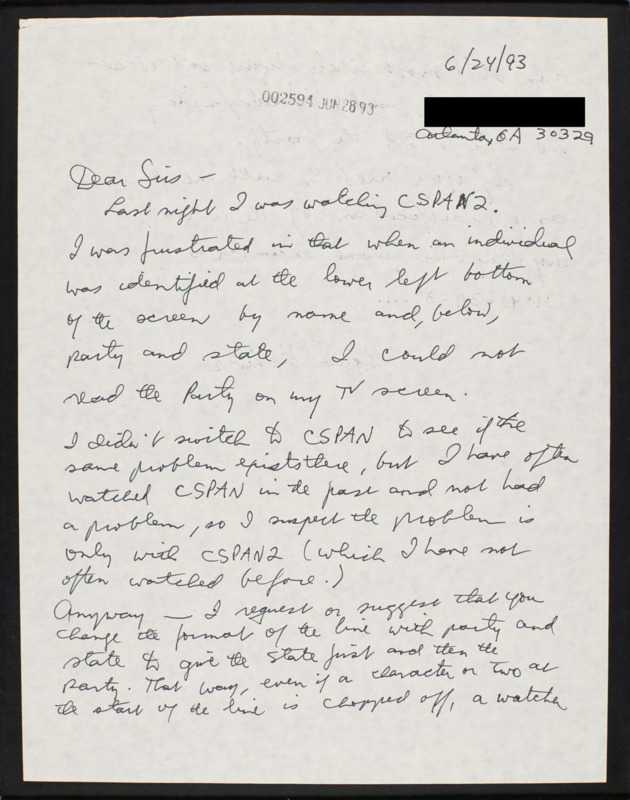 6/24/93
002594 JUN 28 93
Atlanta, GA 30329
Dear Sirs –
Last night I was watching CSPAN2.
I was frustrated in that when an individual
was identified at the lower left bottom
of the screen by name and, below,
party and state, I could not
read the Party on my TV screen.
I didn't switch to CSPAN to see if the
same problem exists there, but I have often
watched CSPAN in the past and not had
a problem, so I suspect the problem is
only with CSPAN2 (which I have not
often watched before.)
Anyway — I request or suggest that you
change the format of the line with party and
state to give the state first and then the
party. That way, even if a character or two at
the start of the line is chopped off, a watcher